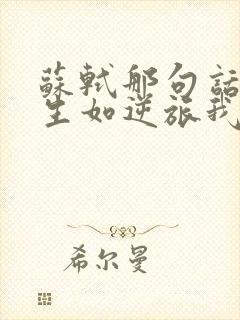 蘇軾那句話
生如逆旅我
希尔曼